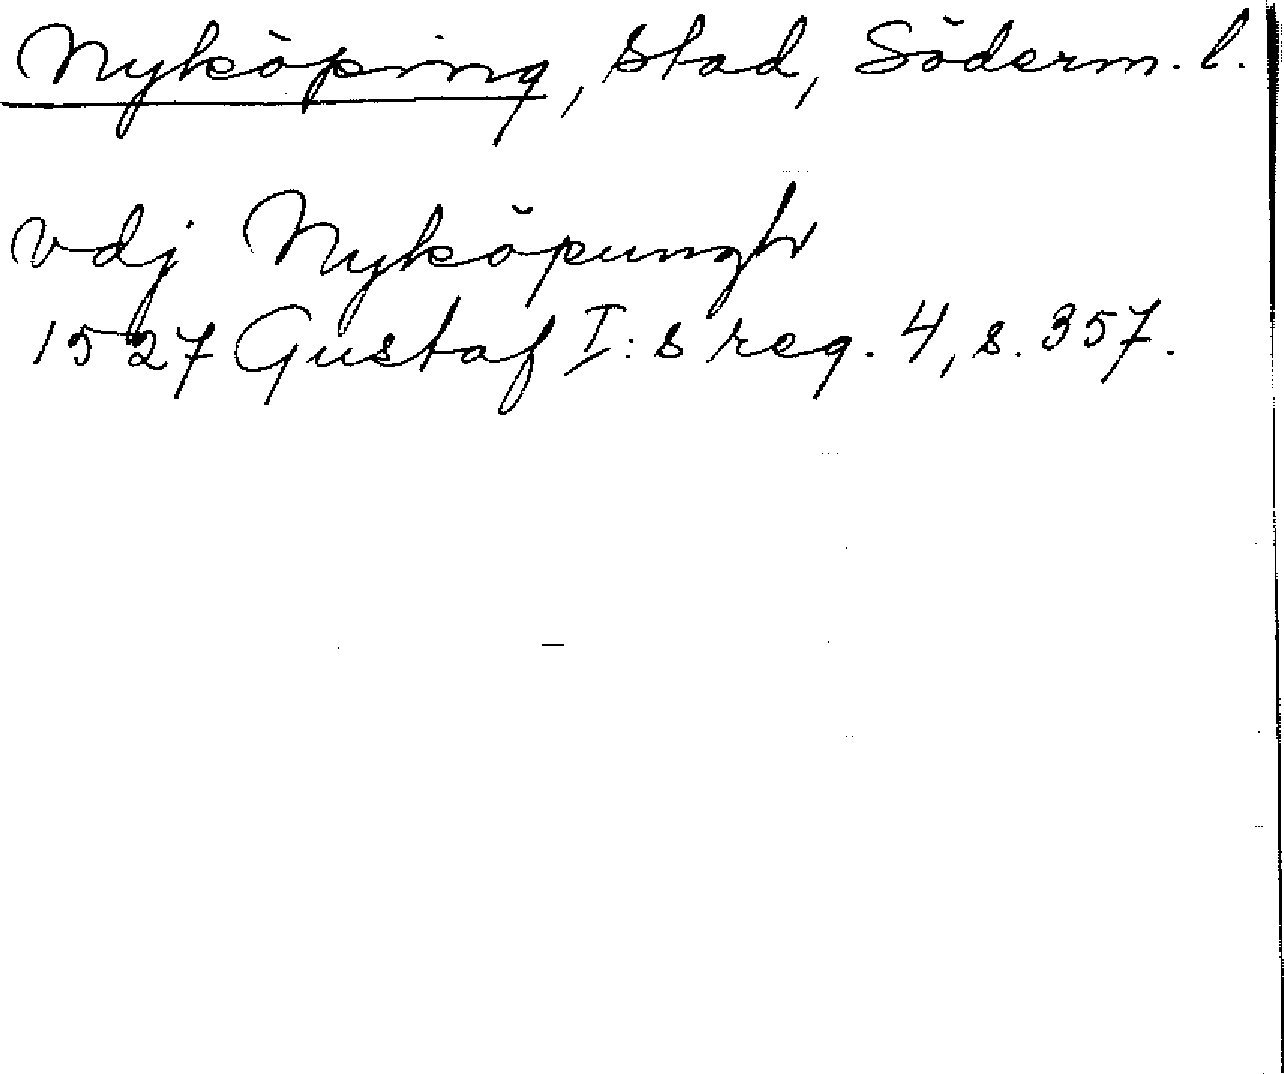 Nyköping, stad, Söderm. l.
vdj Nyköpungh
1527 Gustaf I:s reg. 4, s. 357.